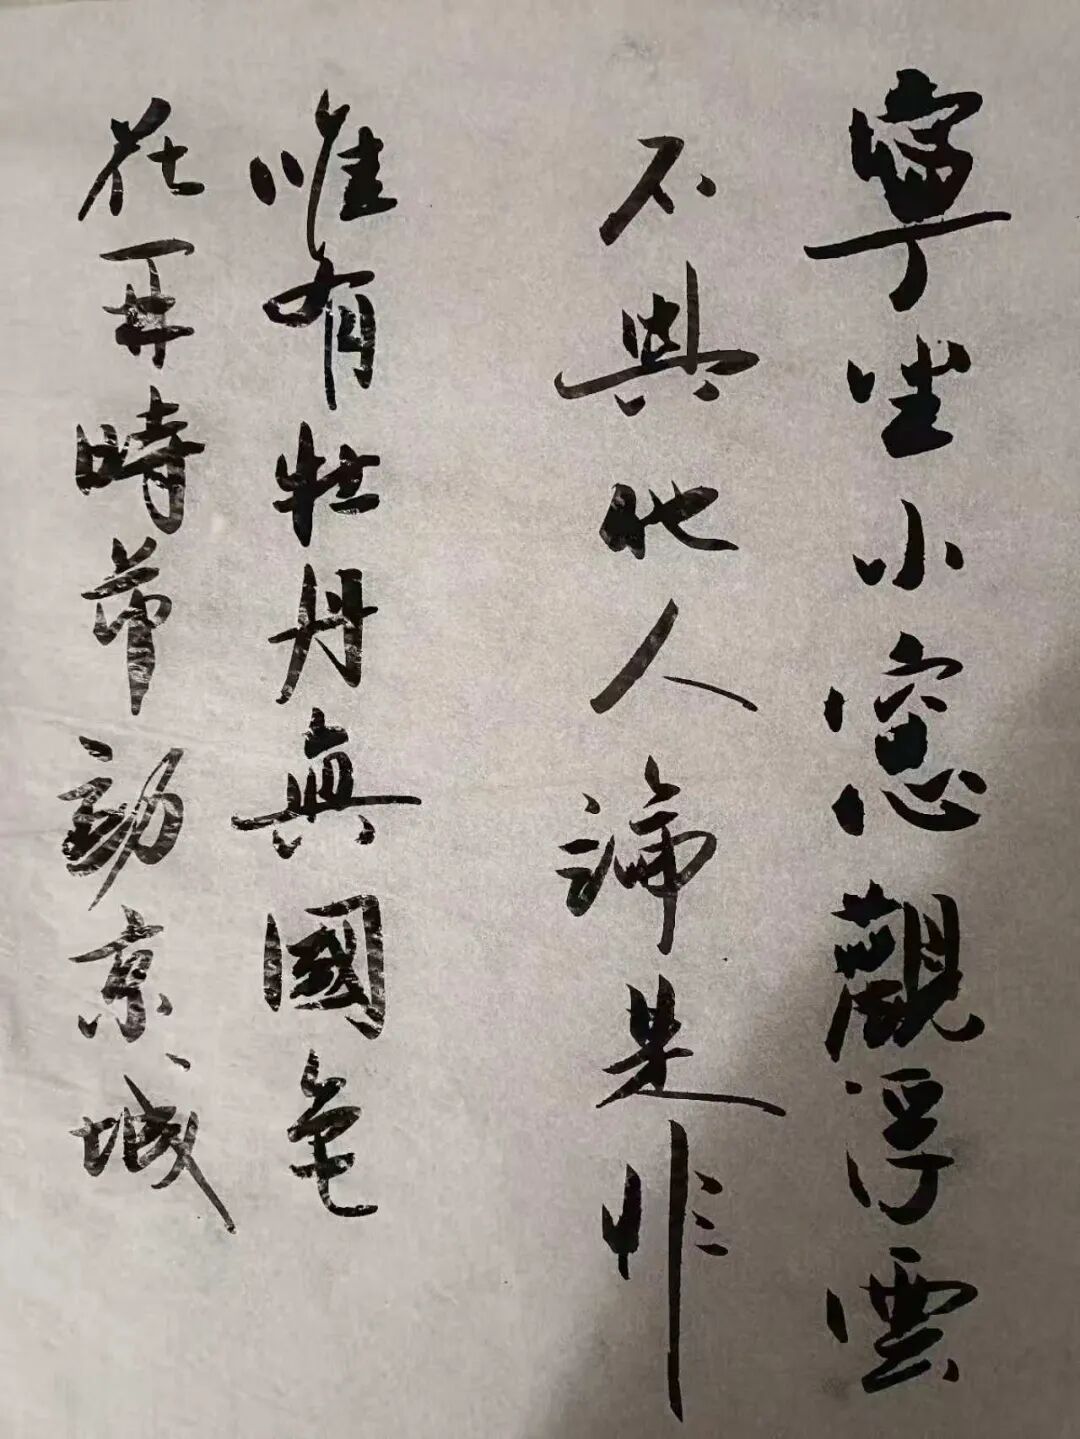 寧坐小窓觀浮雲
不與他人論是非
唯有牡丹真國色
花開時節動京城